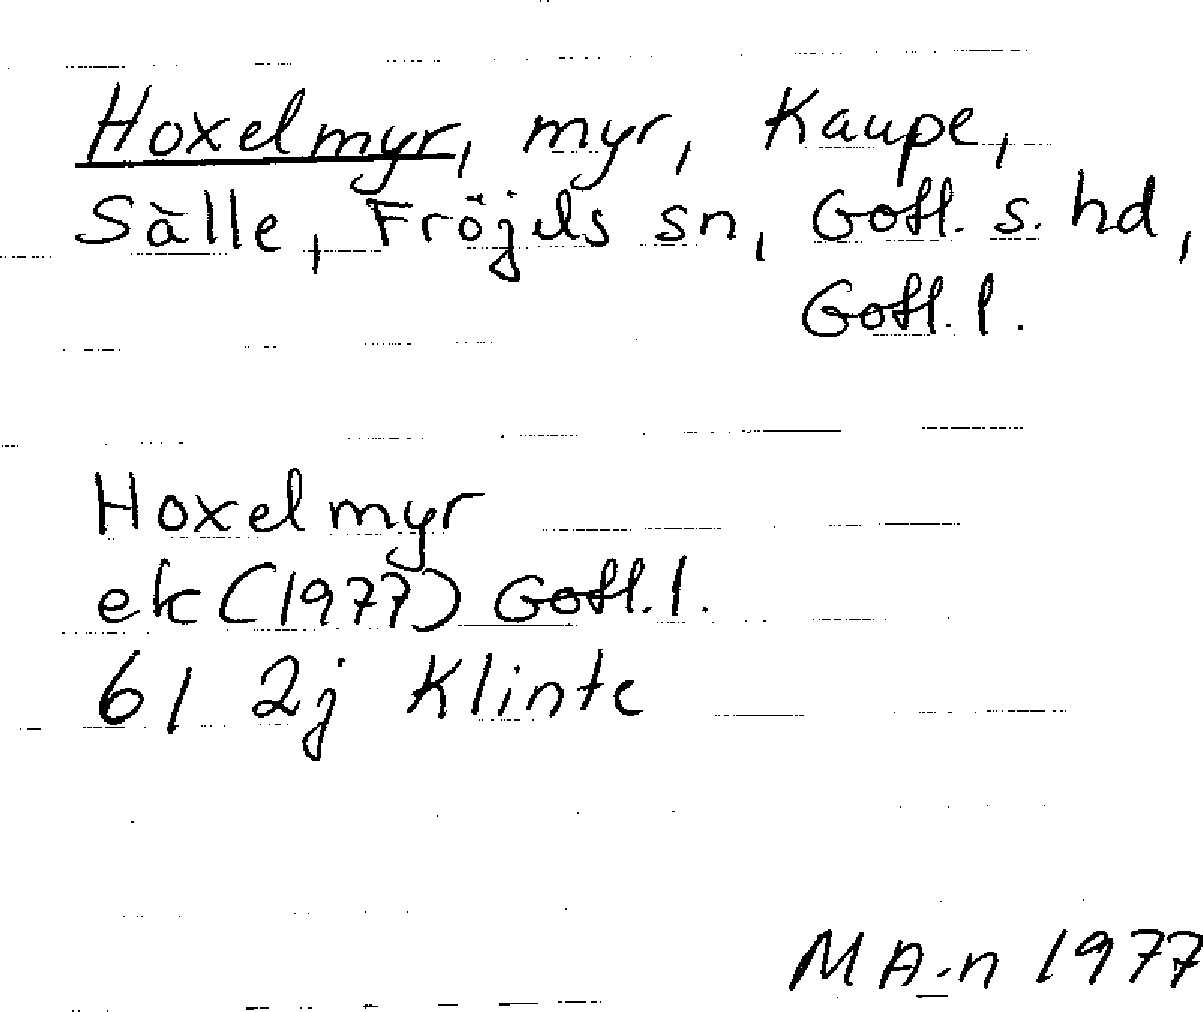 Hoxelmyr, myr, Kaupe,
Sälle, Fröjels sn, Gotl. s. hd,
Gotl. l.
Hoxelmyr
ek (1977) Gotl. l.
61 2j Klinte
M A-n 1977